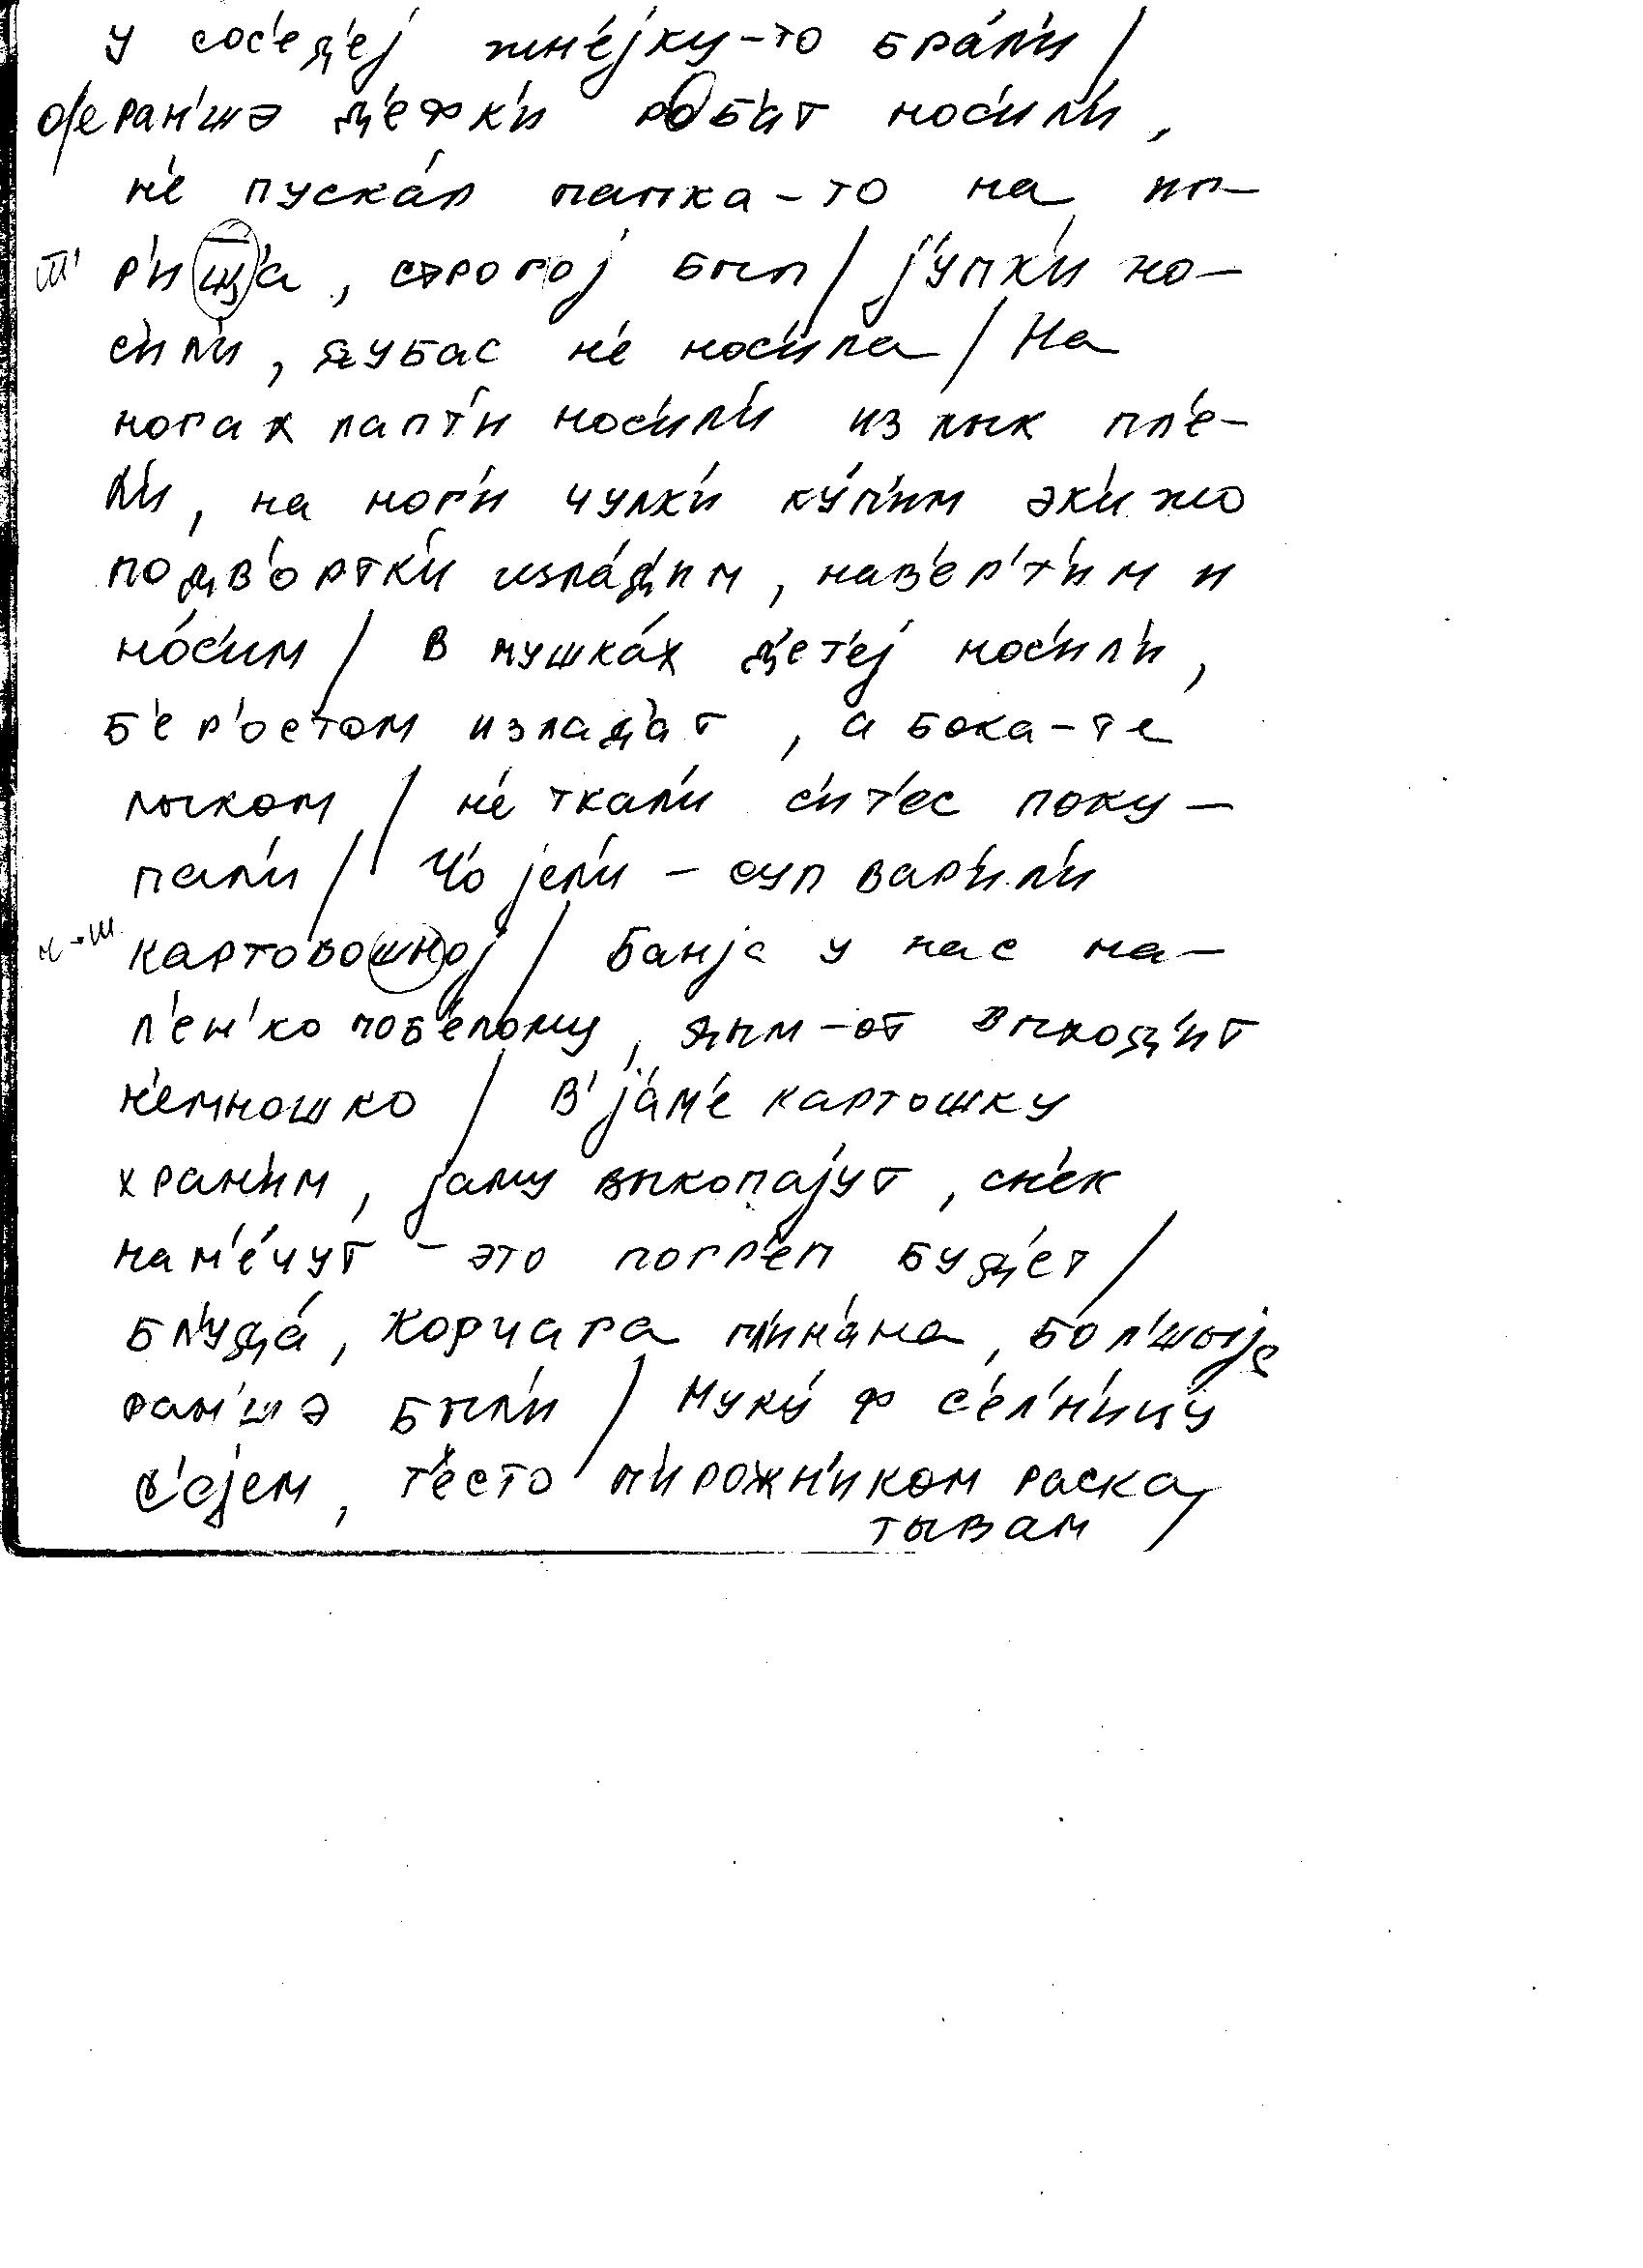 у сос'ед'еј жн'ејку-то брáл'и /
о/е ран'шэ д'ефк'и робʼат нос'ил'и,
н'е пускáл папка-то на иг-
ш̅' р'иш̅'а, строгој был / јупк'и но-
с'ил'и, дубас н'е нос'ила / На
ногах лапт'и нос'ил'и из лык пл'е-
л'и, на ног'и чулк'и ку́п'им эк'и жо
подв'ортк'и излáд'им, нав'ер'т'им и
нóс'им / в пушкáх д'ет'еј нос'ил'и,
б'ер'остом излад'ат, а бока-те
лыком / н'е ткал'и с'ит'ес поку-
пал'и / Чо јел'и - суп вар'ил'и
ч→ш картовошној / Банја у нас ма-
л'ен'ко поб'елому, дым-от выход'ит
н'емношко / В' јáм'е картошку
хран'им, јаму выкопајут, сн'ек
нам'éчут - это погр'еп буд'ет /
бл'удá, корчага гл'ин'ана, бол'шыје
ран'шэ был'и / Муку́ ф с'ел'н'ицу
с'ејем, т'есто п'ирожн'иком раска
тывам /